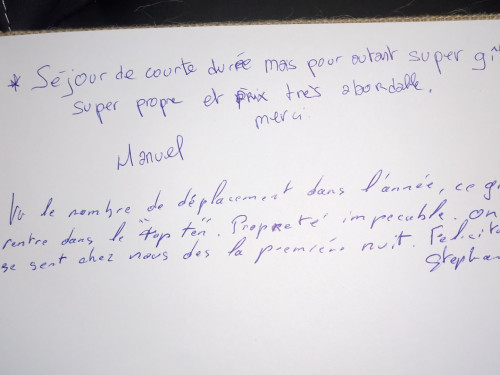 * Séjour de courte durée mas pour autant super gî
super propre et prix très abordable.
merci.
Manuel
Vu le nombre de déplacement dans l'année, ce g
rentre dans le "top ten". Propreté impecable. on
se sent chez nous des la première nuit. Felicita
Stephan